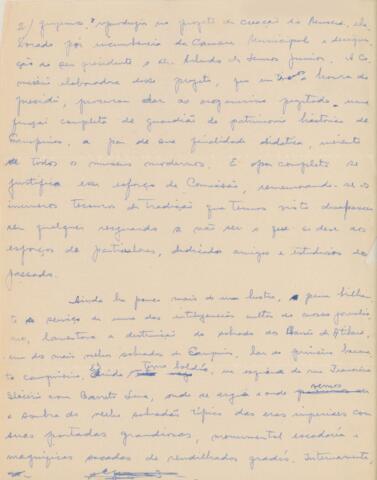 2/
reprodução no projeto de creação do Museu, ela-
borado por incumbencia da Camara Municipal e designa-
ção do seu presidente o sr. de Lemos Junior. A Co-
missão elaboradora desse projeto, que tive a honra de
presidir, procurou dar ao organismo projetado uma
função completa de guardião do patrimonio histórico de
Campinas, a par de sua finalidade didática, inerente
a todos os museus modernos. E por completo se
justifica esse esforço da Comissão, rememorando-se os
inumeros tesouros da tradição que temos visto desaparecer
sem qualquer resguardo a não ser o que se deve aos
esforços de particulares, dedicados amigos e estudiosos do
passado.
Ainda ha pouco mais de um lustro, a pena brilhan-
te a serviço de uma das inteligencias cultas do nosso jornalis-
mo, lamentava a destruição do sobrado do Barão de Atibaia,
um dos mais velhos sobrados de Campinas, lar do primeiro
campineiro, na esquina da rua Francisco
Glicerio com Barreto Leme, onde se erguia e onde vemos
a sombra do velho sobradão típico das eras imperiaes com
suas portadas grandiosas, monumental escadaria e
magnificas sacadas de rendilhados gradís. Internamente,